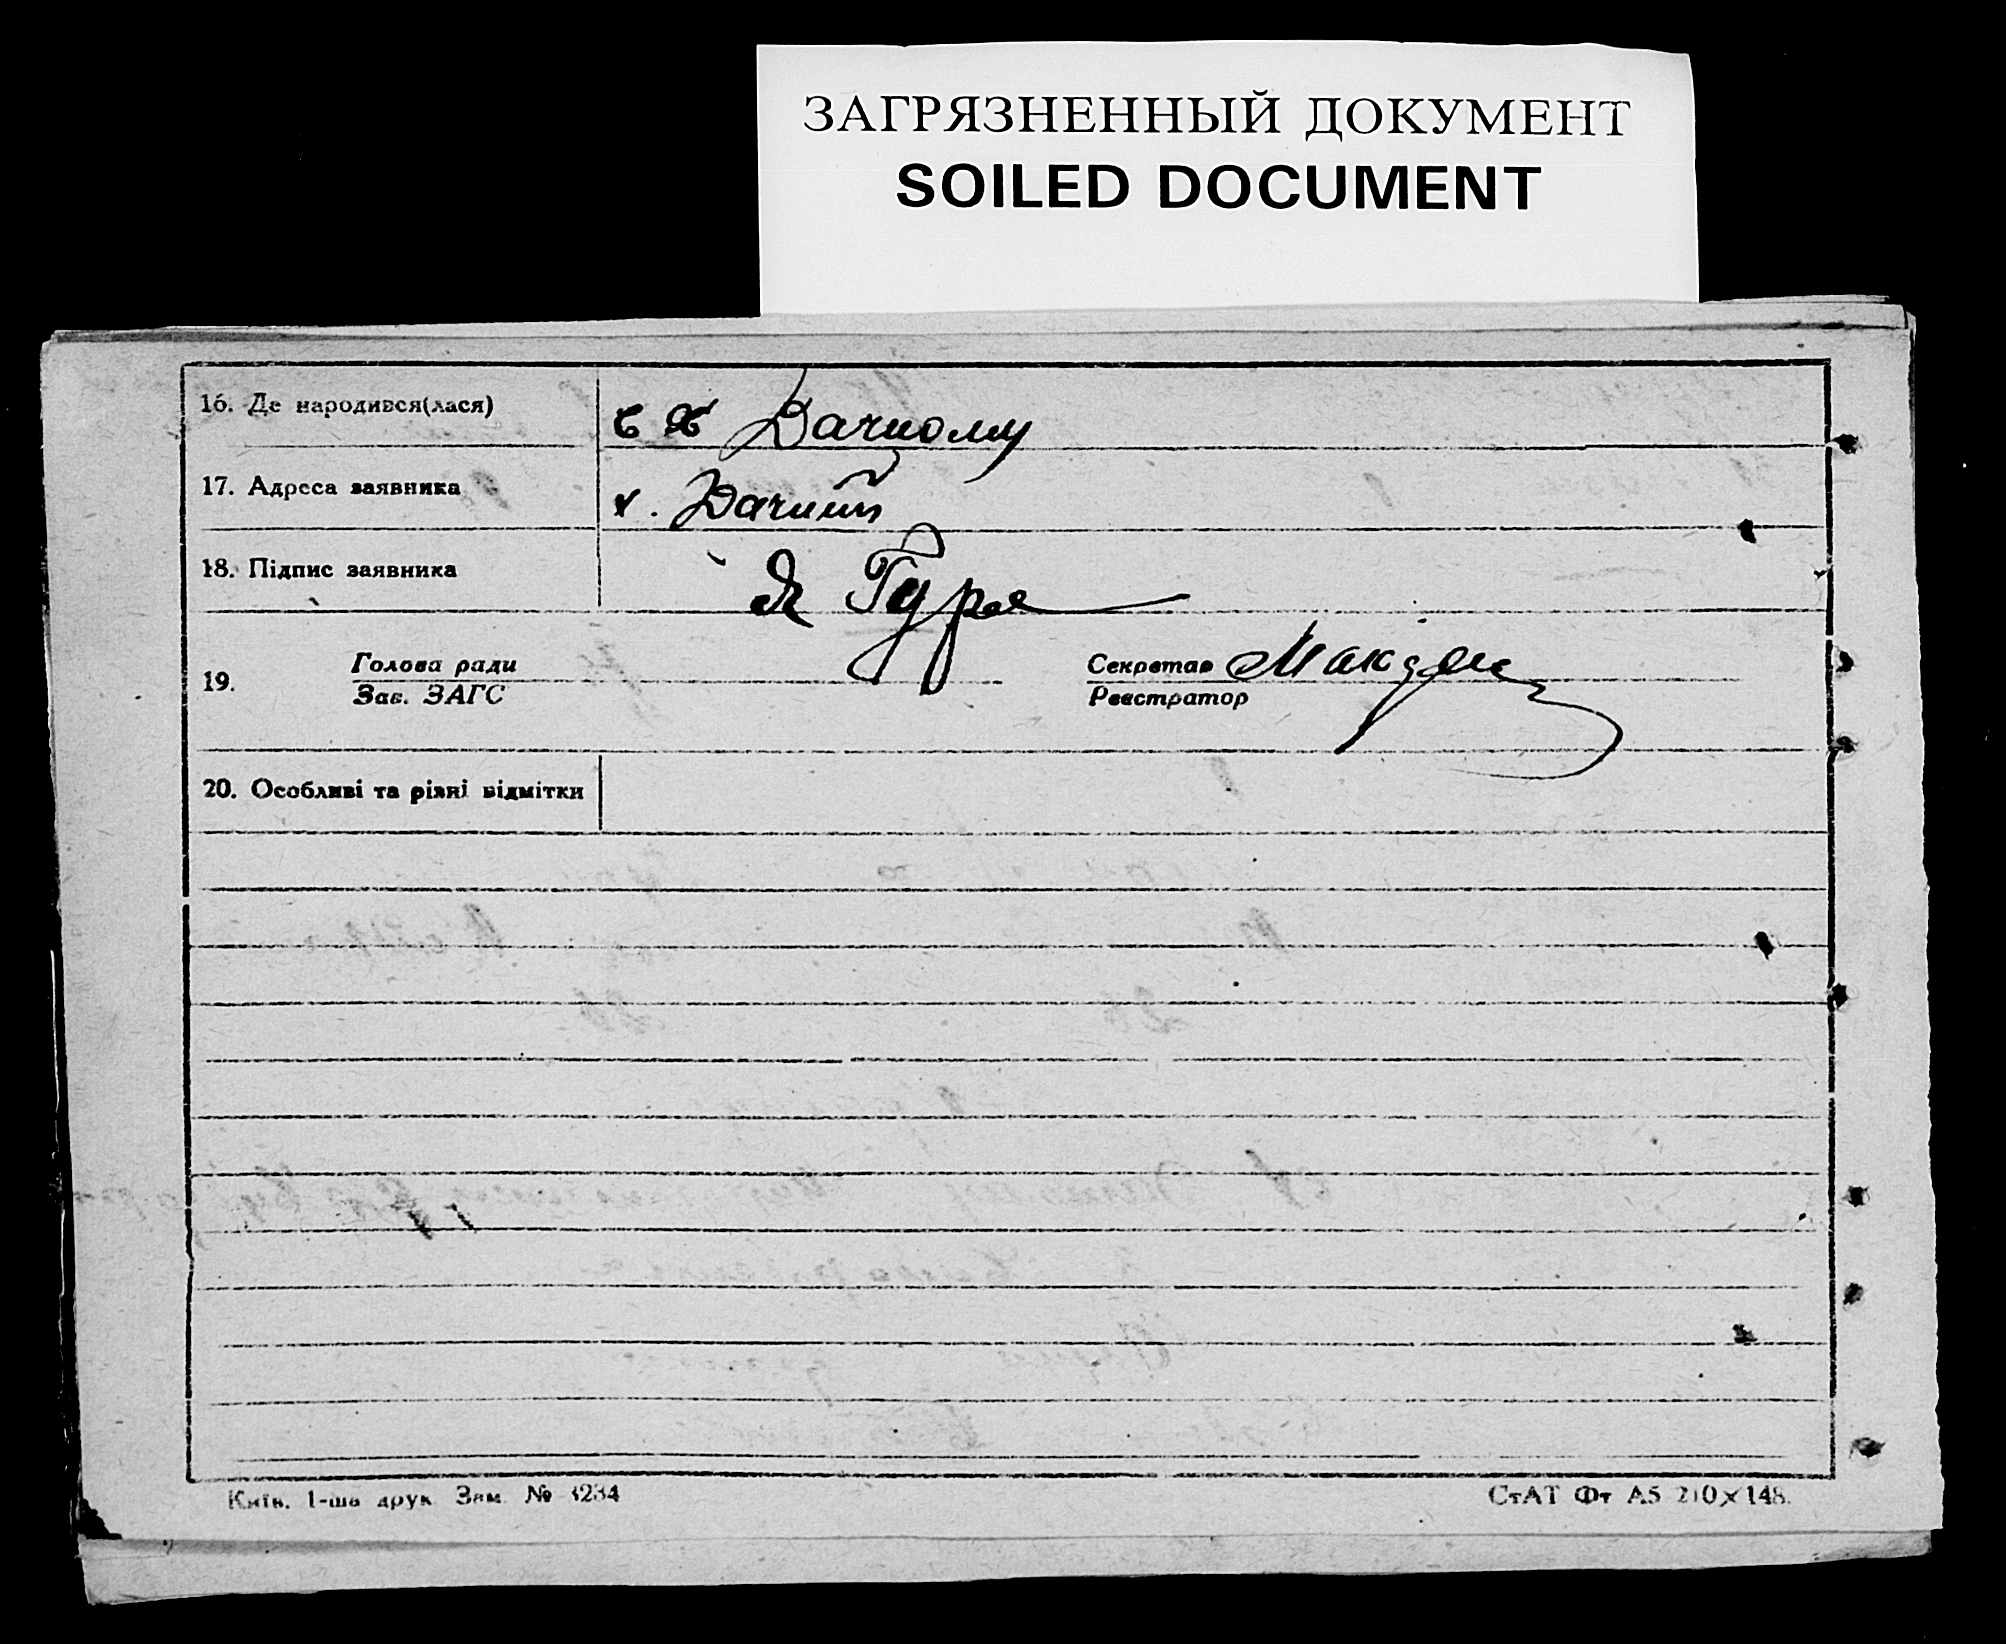 ЗАГРЯЗНЕННЫЙ ДОКУМЕНТ
SOILED DOCUMENT
16. Де народився(лася) с Х Дачному
17. Адреса заявника х. Дачний
18. Підпис заявника Гура
19. Голова ради Секретар
Зав. ЗАГС Реєстратор
20. Особливі та різні відмітки
Київ. 1-ша друк. Зам. № 3234 СтАТ Фт А5 210×148.